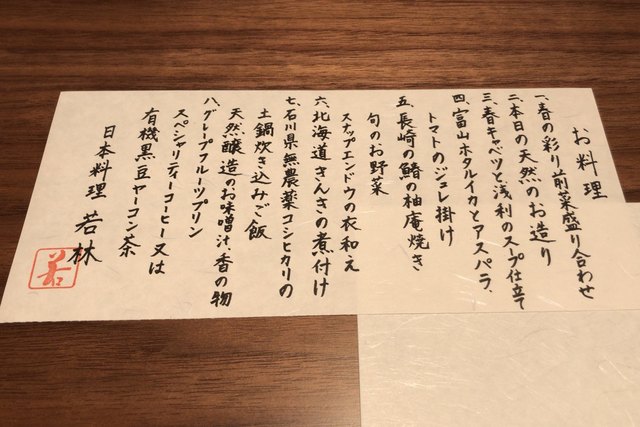 お料理
一、春の彩り前菜盛り合わせ
二、本日の天然のお造り
三、春キャベツと浅利のスープ仕立て
四、富山ホタルイカとアスパラ、
トマトのジュレ掛け
五、長崎の鰆の柚庵焼き
旬のお野菜
スナップエンドウの衣和え
六、北海道きんきの煮付け
七、石川県無農薬コシヒカリの
土鍋炊き込みご飯
天然醸造のお味噌汁、香の物
八、グレープフルーツプリン
スペシャリティーコーヒー又は
有機黒豆ヤーコン茶
日本料理 若林
若